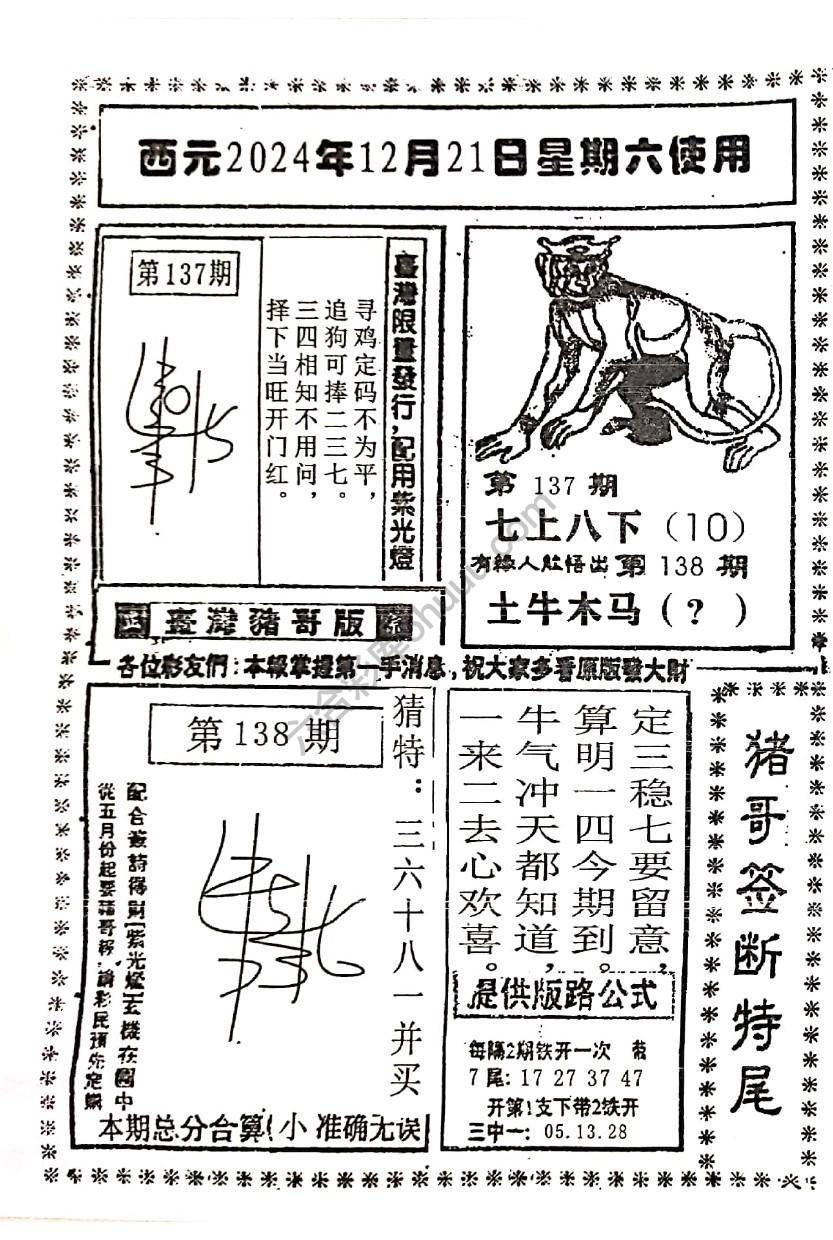 西元2024年12月21日星期六使用
第137期
寻鸡定码不为平，
追狗可捧二三七。
三四相知不用问，
择下当旺开门红。
臺灣限量發行，配用紫光燈
第 137 期
七上八下（10）
有緣人能悟出 第 138 期
土牛木马（？）
臺灣豬哥版
各位彩友們：本報掌握第一手消息，祝大家多看原版發大財
第138期
猜特：三六十八一并买
配合簽詩得財
紫光燈
玄機在圖中
從五月份起要豬哥報，請彩民預先定購
本期总分合算（小 准确无误
定三稳七要留意，
算明一四今期到。
牛气冲天都知道，
一来二去心欢喜。
提供版路公式
每隔2期铁开一次 带
7尾：17 27 37 47
开第1支下带2铁开
三中一：05.13.28
猪哥签断特尾
六合彩库ohuuc.com